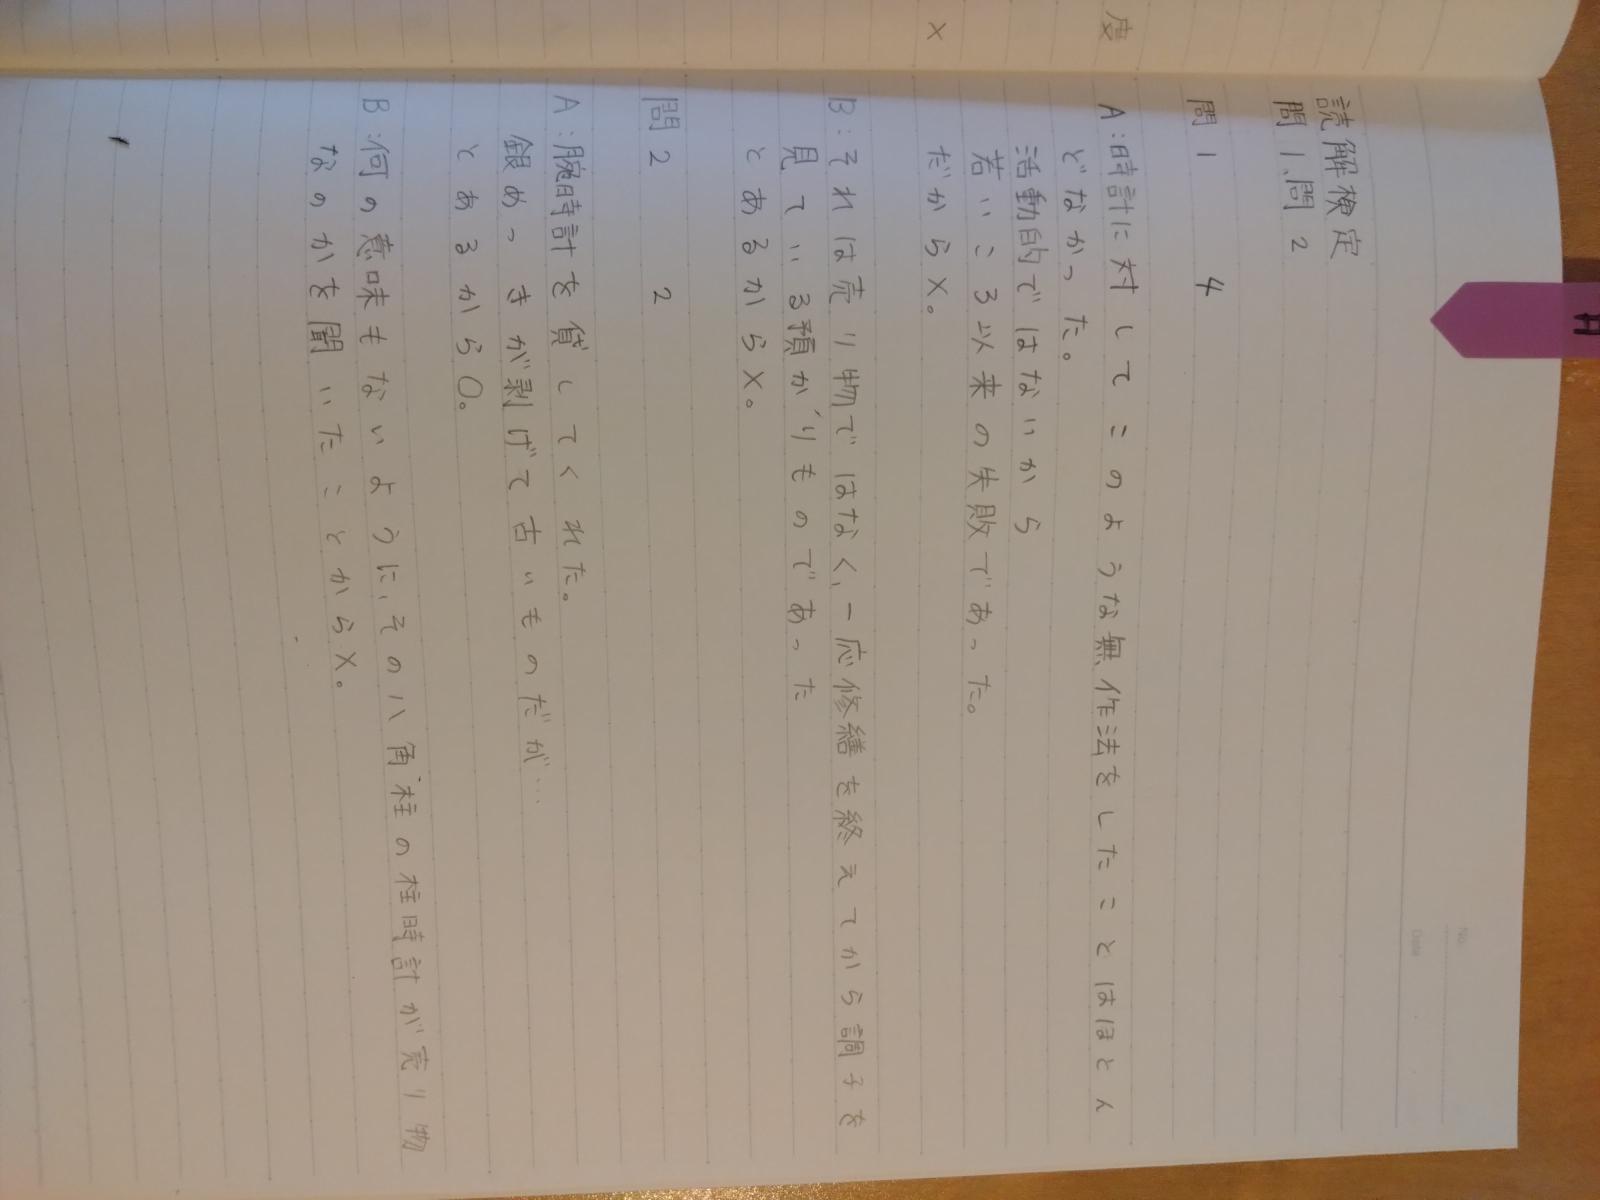 度
×
No.
Date
読解検定
問1、問2
問1 4
A:時計に対してこのような無作法をしたことはほとん
どなかった。
活動的ではないから
若いころ以来の失敗であった。
だから×。
B:それは売り物ではなく、一応修繕を終えてから調子を
見ている預かりものであった
とあるから×。
問2 2
A:腕時計を貸してくれた。
銀めっきが剥げて古いものだが…
とあるから○。
B:何の意味もないように、その八角柱の柱時計が売り物
なのかを聞いたことから×。